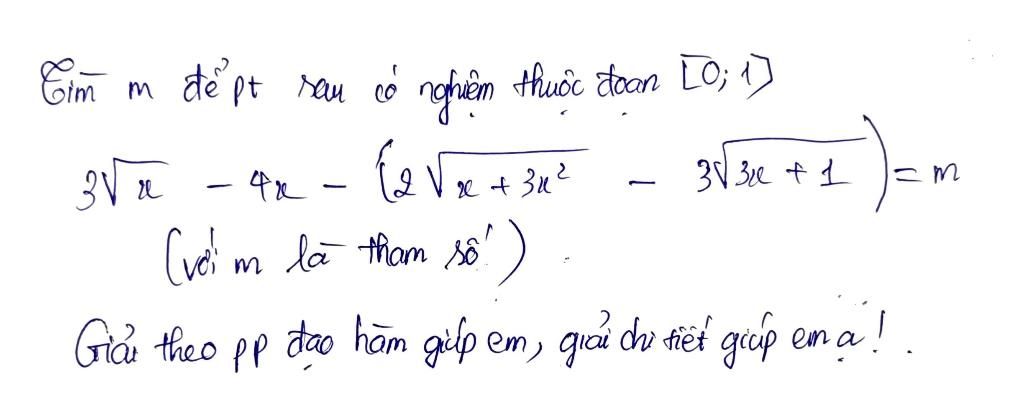 Tìm m để pt sau có nghiệm thuộc đoạn [0; 1]
3√x - 4x - (2√(x + 3x²) - 3√(3x + 1)) = m
(với m là tham số)
Giải theo pp đạo hàm giúp em, giải chi tiết giúp em ạ!